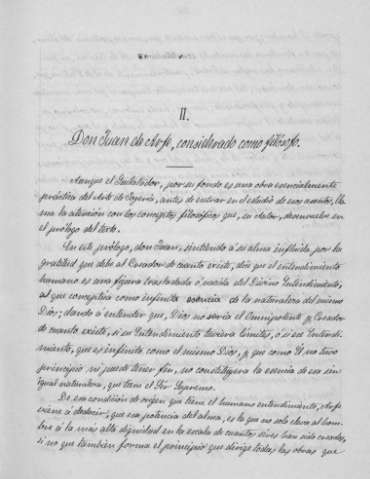 II.
Don Juan de Arfe, considerado como filósofo.
Aunque el Quilatador, por su fondo es una obra esencialmente
práctica del Arte de Joyería, antes de entrar en el estudio de sus asuntos, lla-
ma la atención con los conceptos filosóficos que, su autor, desenvuelve en
el prólogo del texto.
En este prólogo, don Juan, sintiendo á su alma influida por la
gratitud que debe al Creador de cuanto existe, dice que el entendimiento
humano es una figura trasladada ó nacida del Divino Entendimiento,
al que conceptúa como infinita esencia de la naturaleza del mismo
Dios; dando á entender que, Dios no sería el Omnipotente y Creador
de cuanto existe, si su Entendimiento tuviera límites, ó si ese Entendi-
miento, que es infinito como el mismo Dios, y que como Él no tuvo
principio ni puede tener fin, no constituyera la esencia de esa sin
igual naturaleza, que tiene el Ser Supremo.
De esa condición de origen que tiene el humano entendimiento, Arfe
viene á deducir, que esa potencia del alma, es la que no solo eleva al hom-
bre á la más alta dignidad en la escala de cuantos seres han sido creados,
si no que también forma el principio que dirige todas las obras que